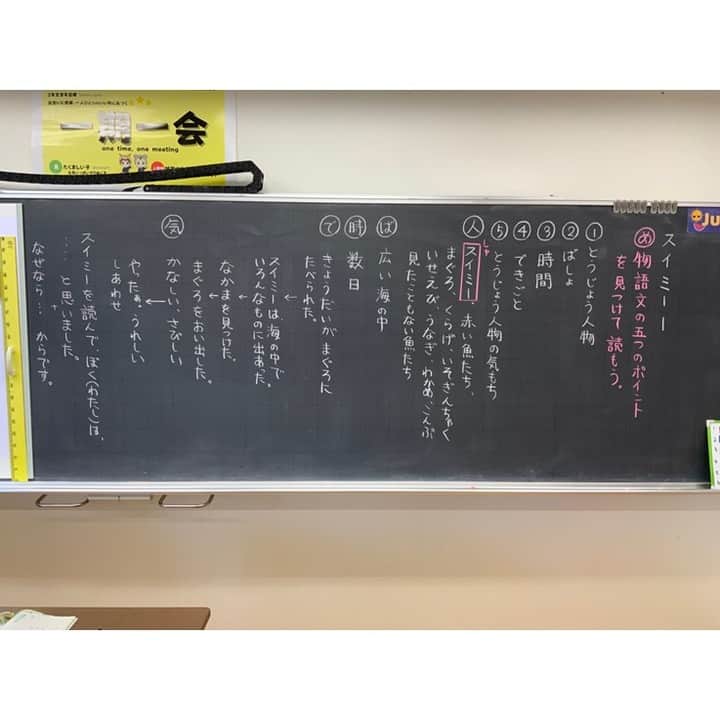 一期一会
one time, one meeting
たくましい子
Ju
スイミー
め 物語文の五つのポイント
を見つけて読もう。
① とうじょう人物
② ばしょ
③ 時間
④ できごと
⑤ とうじょう人物の気もち
人 スイミー、赤い魚たち、
まぐろ、くらげ、いそぎんちゃく
いせえび、うなぎ、わかめ、こんぶ
見たこともない魚たち
ば 広い海の中
時 数日
で きょうだいがまぐろに
たべられた。
↓
スイミーは、海の中で
いろんなものに出あった。
↓
なかまを見つけた。
↓
まぐろをおい出した。
気 かなしい、さびしい
↓
やったぁ。うれしい
しあわせ
スイミーを読んで、ぼく(わたし)は、
…と思いました。
なぜなら…からです。